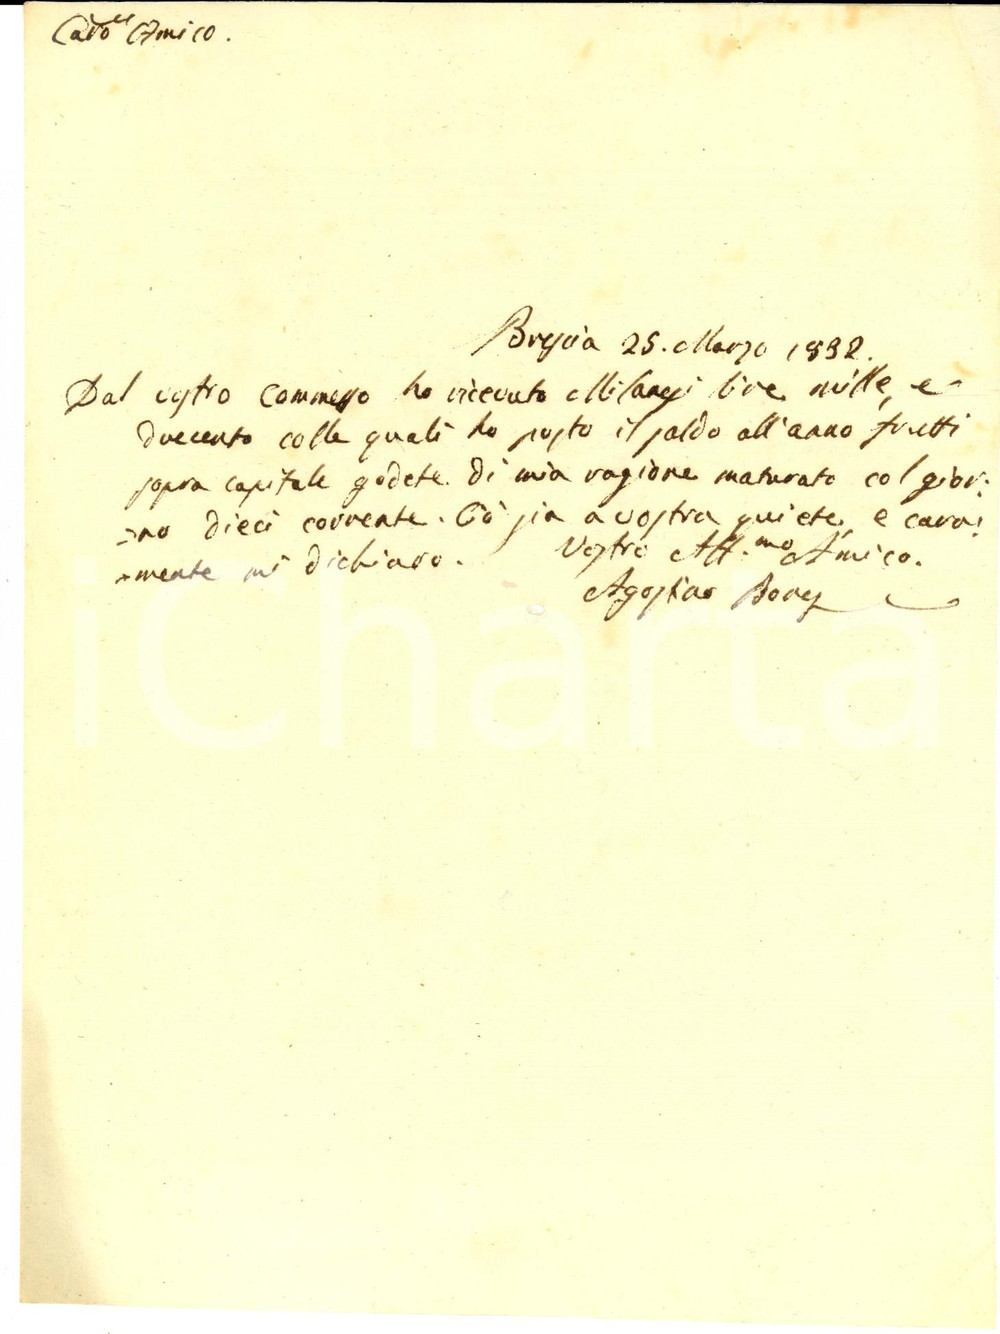 Car.º Amico.
Brescia 25. Marzo 1832.
Dal vostro Commesso ho ricevuto Milanesi lire mille, e
duecento colle quali ho posto il saldo all'anno frutti
sopra capitale godete di mia ragione maturato col gior:
=no dieci corrente. Ciò sia a vostra quiete, e cara:
=mente mi dichiaro.
Vostro Aff.mo Amico.
Agostino
iCharta